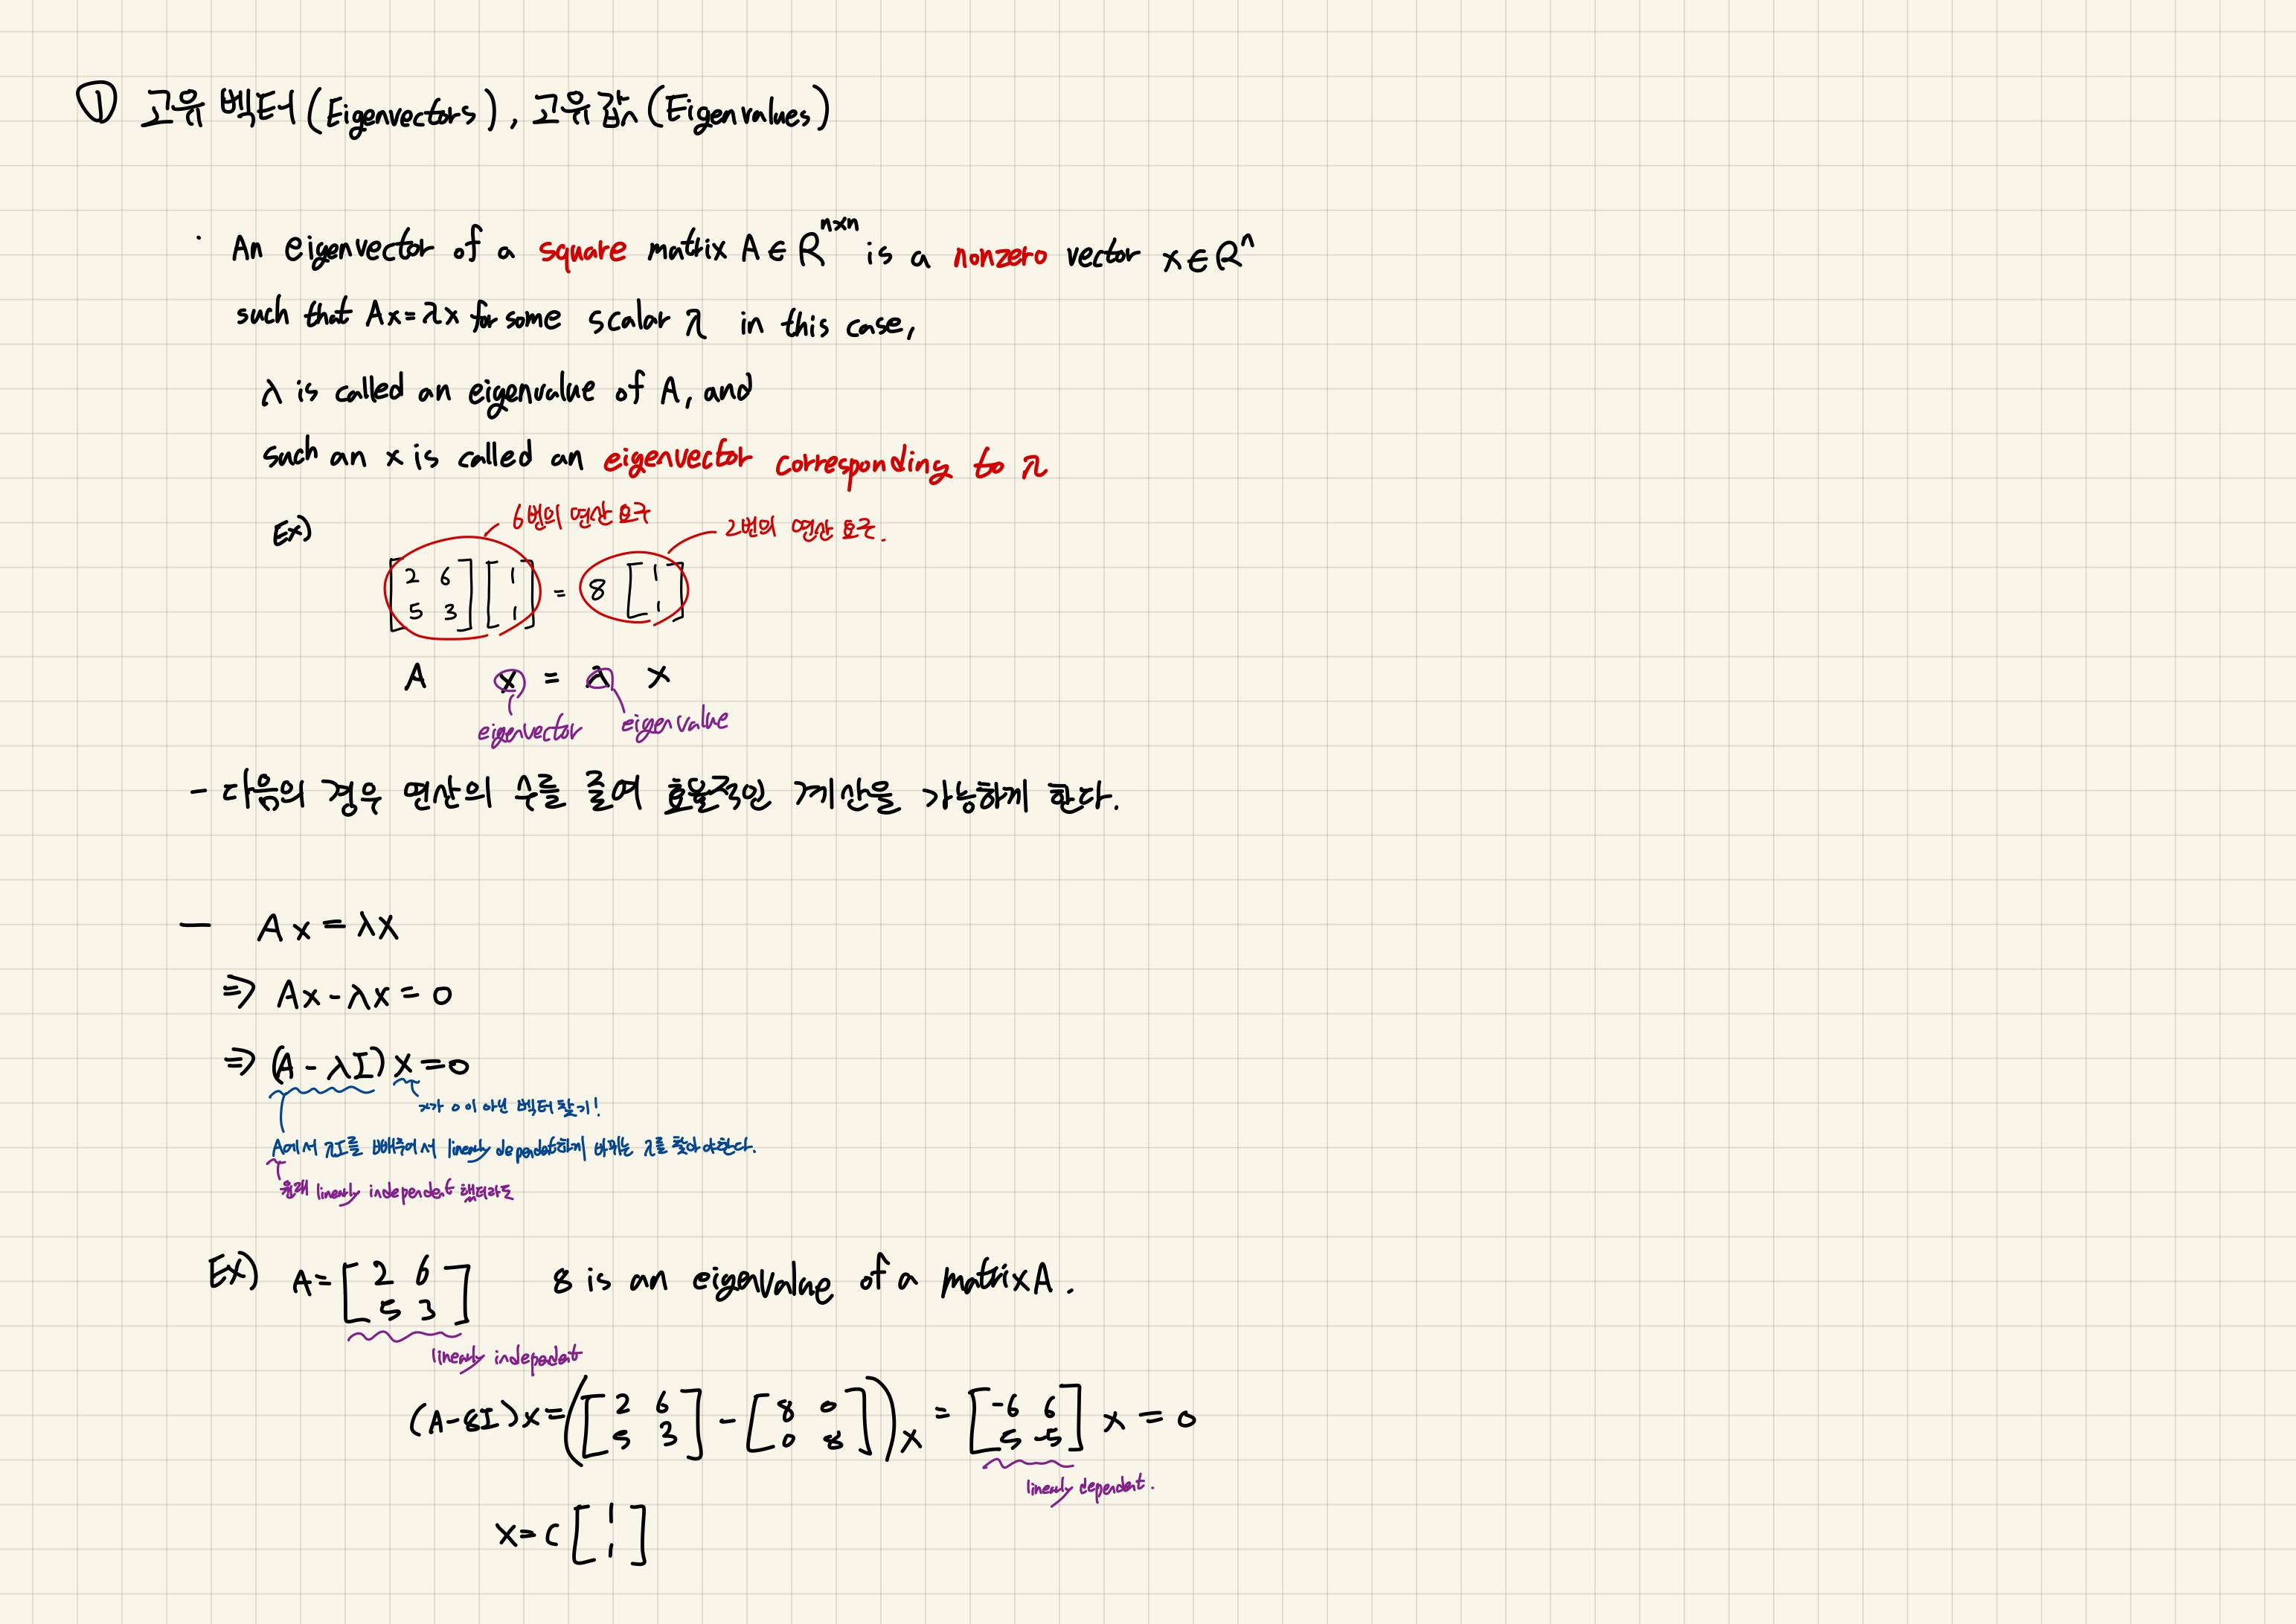 ① 고유 벡터 (Eigenvectors), 고유값 (Eigenvalues)
· An eigenvector of a square matrix A ∈ R^{n×n} is a nonzero vector x ∈ R^n
such that Ax = λx for some scalar λ in this case,
λ is called an eigenvalue of A, and
such an x is called an eigenvector corresponding to λ
Ex)
6번의 연산 요구
2번의 연산 요구.
[2 6; 5 3] [1; 1] = 8 [1; 1]
A x = λ x
eigenvector eigenvalue
- 다음의 경우 연산의 수를 줄여 효율적인 계산을 가능하게 한다.
- Ax = λx
⇒ Ax - λx = 0
⇒ (A - λI) x = 0
x가 0이 아닌 벡터 찾기!
A에서 λI를 빼주어서 linearly dependent하게 바뀌는 λ를 찾아야한다.
원래 linearly independent 했더라도
Ex) A = [2 6; 5 3] 8 is an eigenvalue of a matrix A.
linearly indepedent
(A-8I)x = ([2 6; 5 3] - [8 0; 0 8]) x = [-6 6; 5 -5] x = 0
linearly dependent.
x = c [1; 1]